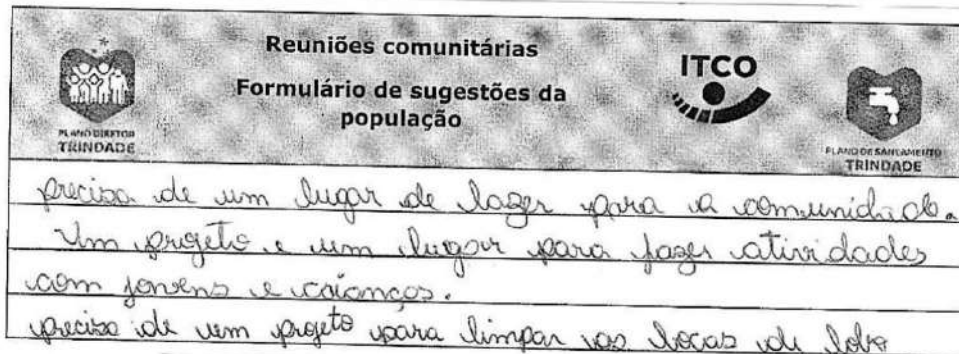 Reuniões comunitárias
Formulário de sugestões da
população
PLANO DIRETOR
TRINDADE
ITCO
PLANO DE SANEAMENTO
TRINDADE
precisa de um lugar de lazer para a comunidade.
Um projeto e um lugar para fazer atividades
com jovens e crianças.
precisa de um projeto para limpar as bocas de lobo